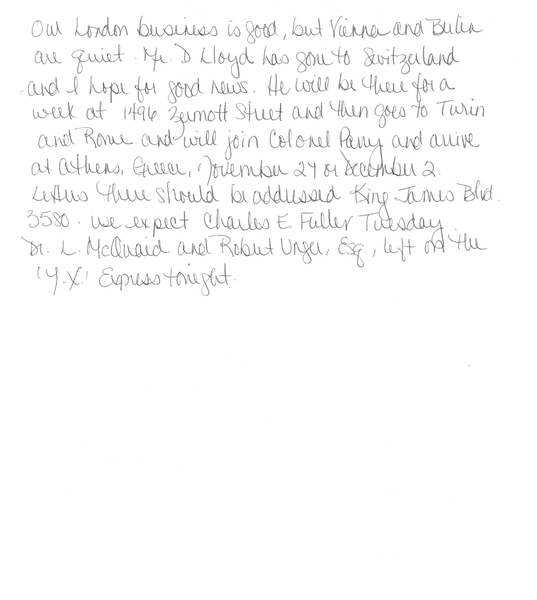 Our London business is good, but Vienna and Berlin
are quiet. Mr. D Lloyd has gone to Switzerland
and I hope for good news. He will be there for a
week at 1496 Zermott Street and then goes to Turin
and Rome and will join Colonel Parry and arrive
at Athens, Greece, November 27 or December 2.
Letters there should be addressed King James Blvd.
3580. we expect Charles E. Fuller Tuesday.
Dr. L. McQuaid and Robert Unger, Esq., left on the
'Y.X.' Express tonight.